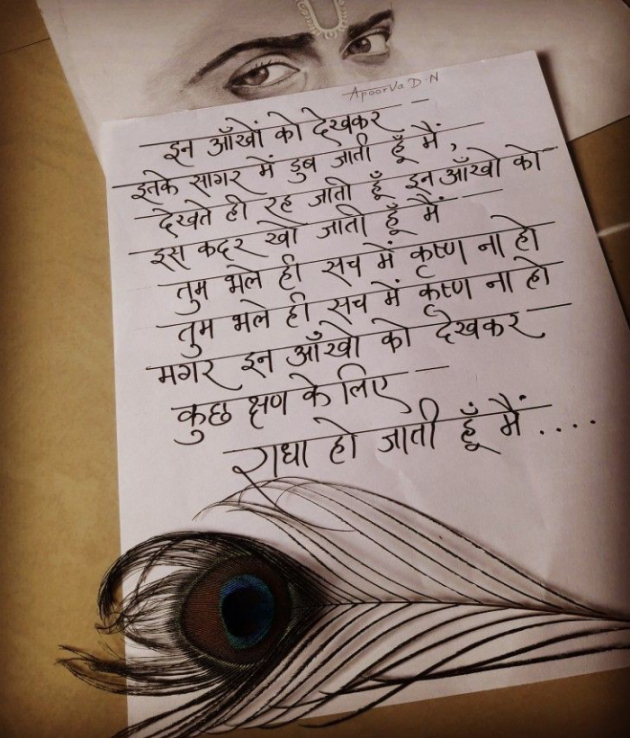 Apoorva D.N
इन आँखों को देखकर -
इनके सागर में डुब जाती हूँ मैं,
देखते ही रह जाती हूँ इन आँखो को
इस कदर खो जाती हूँ मैं -
तुम भले ही सच में कृष्ण ना हो
तुम भले ही सच में कृष्ण ना हो
मगर इन आँखो को देखकर -
कुछ क्षण के लिए -
राधा हो जाती हूँ मैं ....